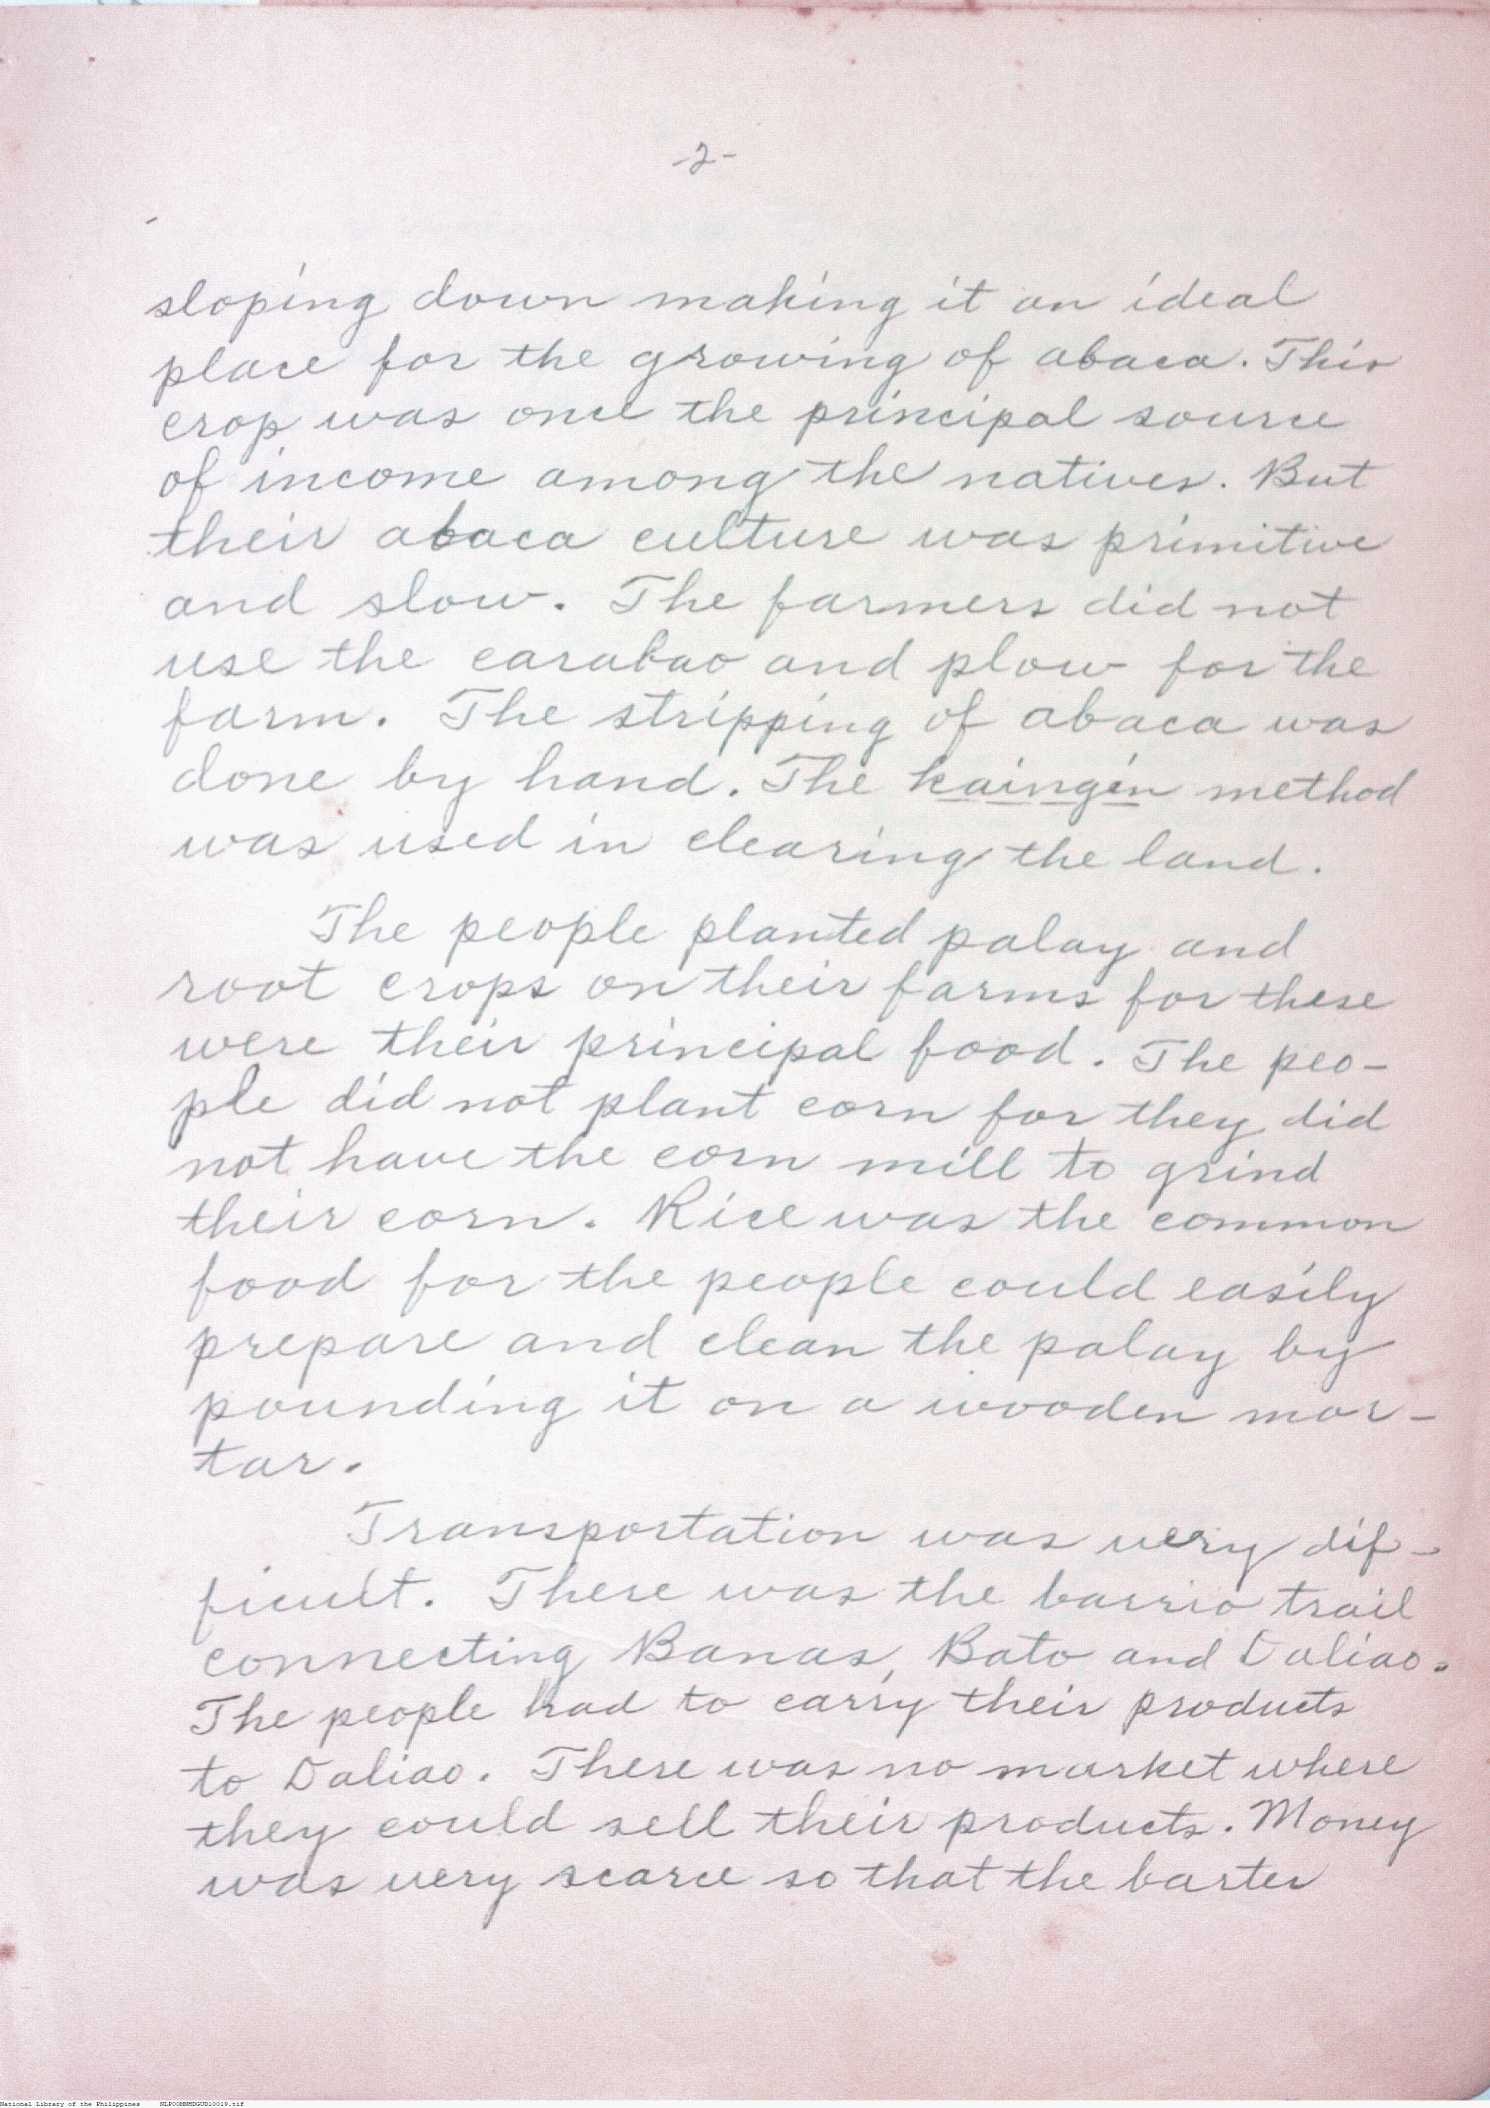 -2-
sloping down making it an ideal
place for the growing of abaca. This
crop was once the principal source
of income among the natives. But
their abaca culture was primitive
and slow. The farmers did not
use the carabao and plow for the
farm. The stripping of abaca was
done by hand. The kaingin method
was used in clearing the land.
The people planted palay and
root crops on their farms for these
were their principal food. The peo-
ple did not plant corn for they did
not have the corn mill to grind
their corn. Rice was the common
food for the people could easily
prepare and clean the palay by
pounding it on a wooden mor-
tar.
Transportation was very dif-
ficult. There was the barrio trail
connecting Banas, Bato and Daliao.
The people had to carry their products
to Daliao. There was no market where
they could sell their products. Money
was very scarce so that the barter
National Library of the Philippines